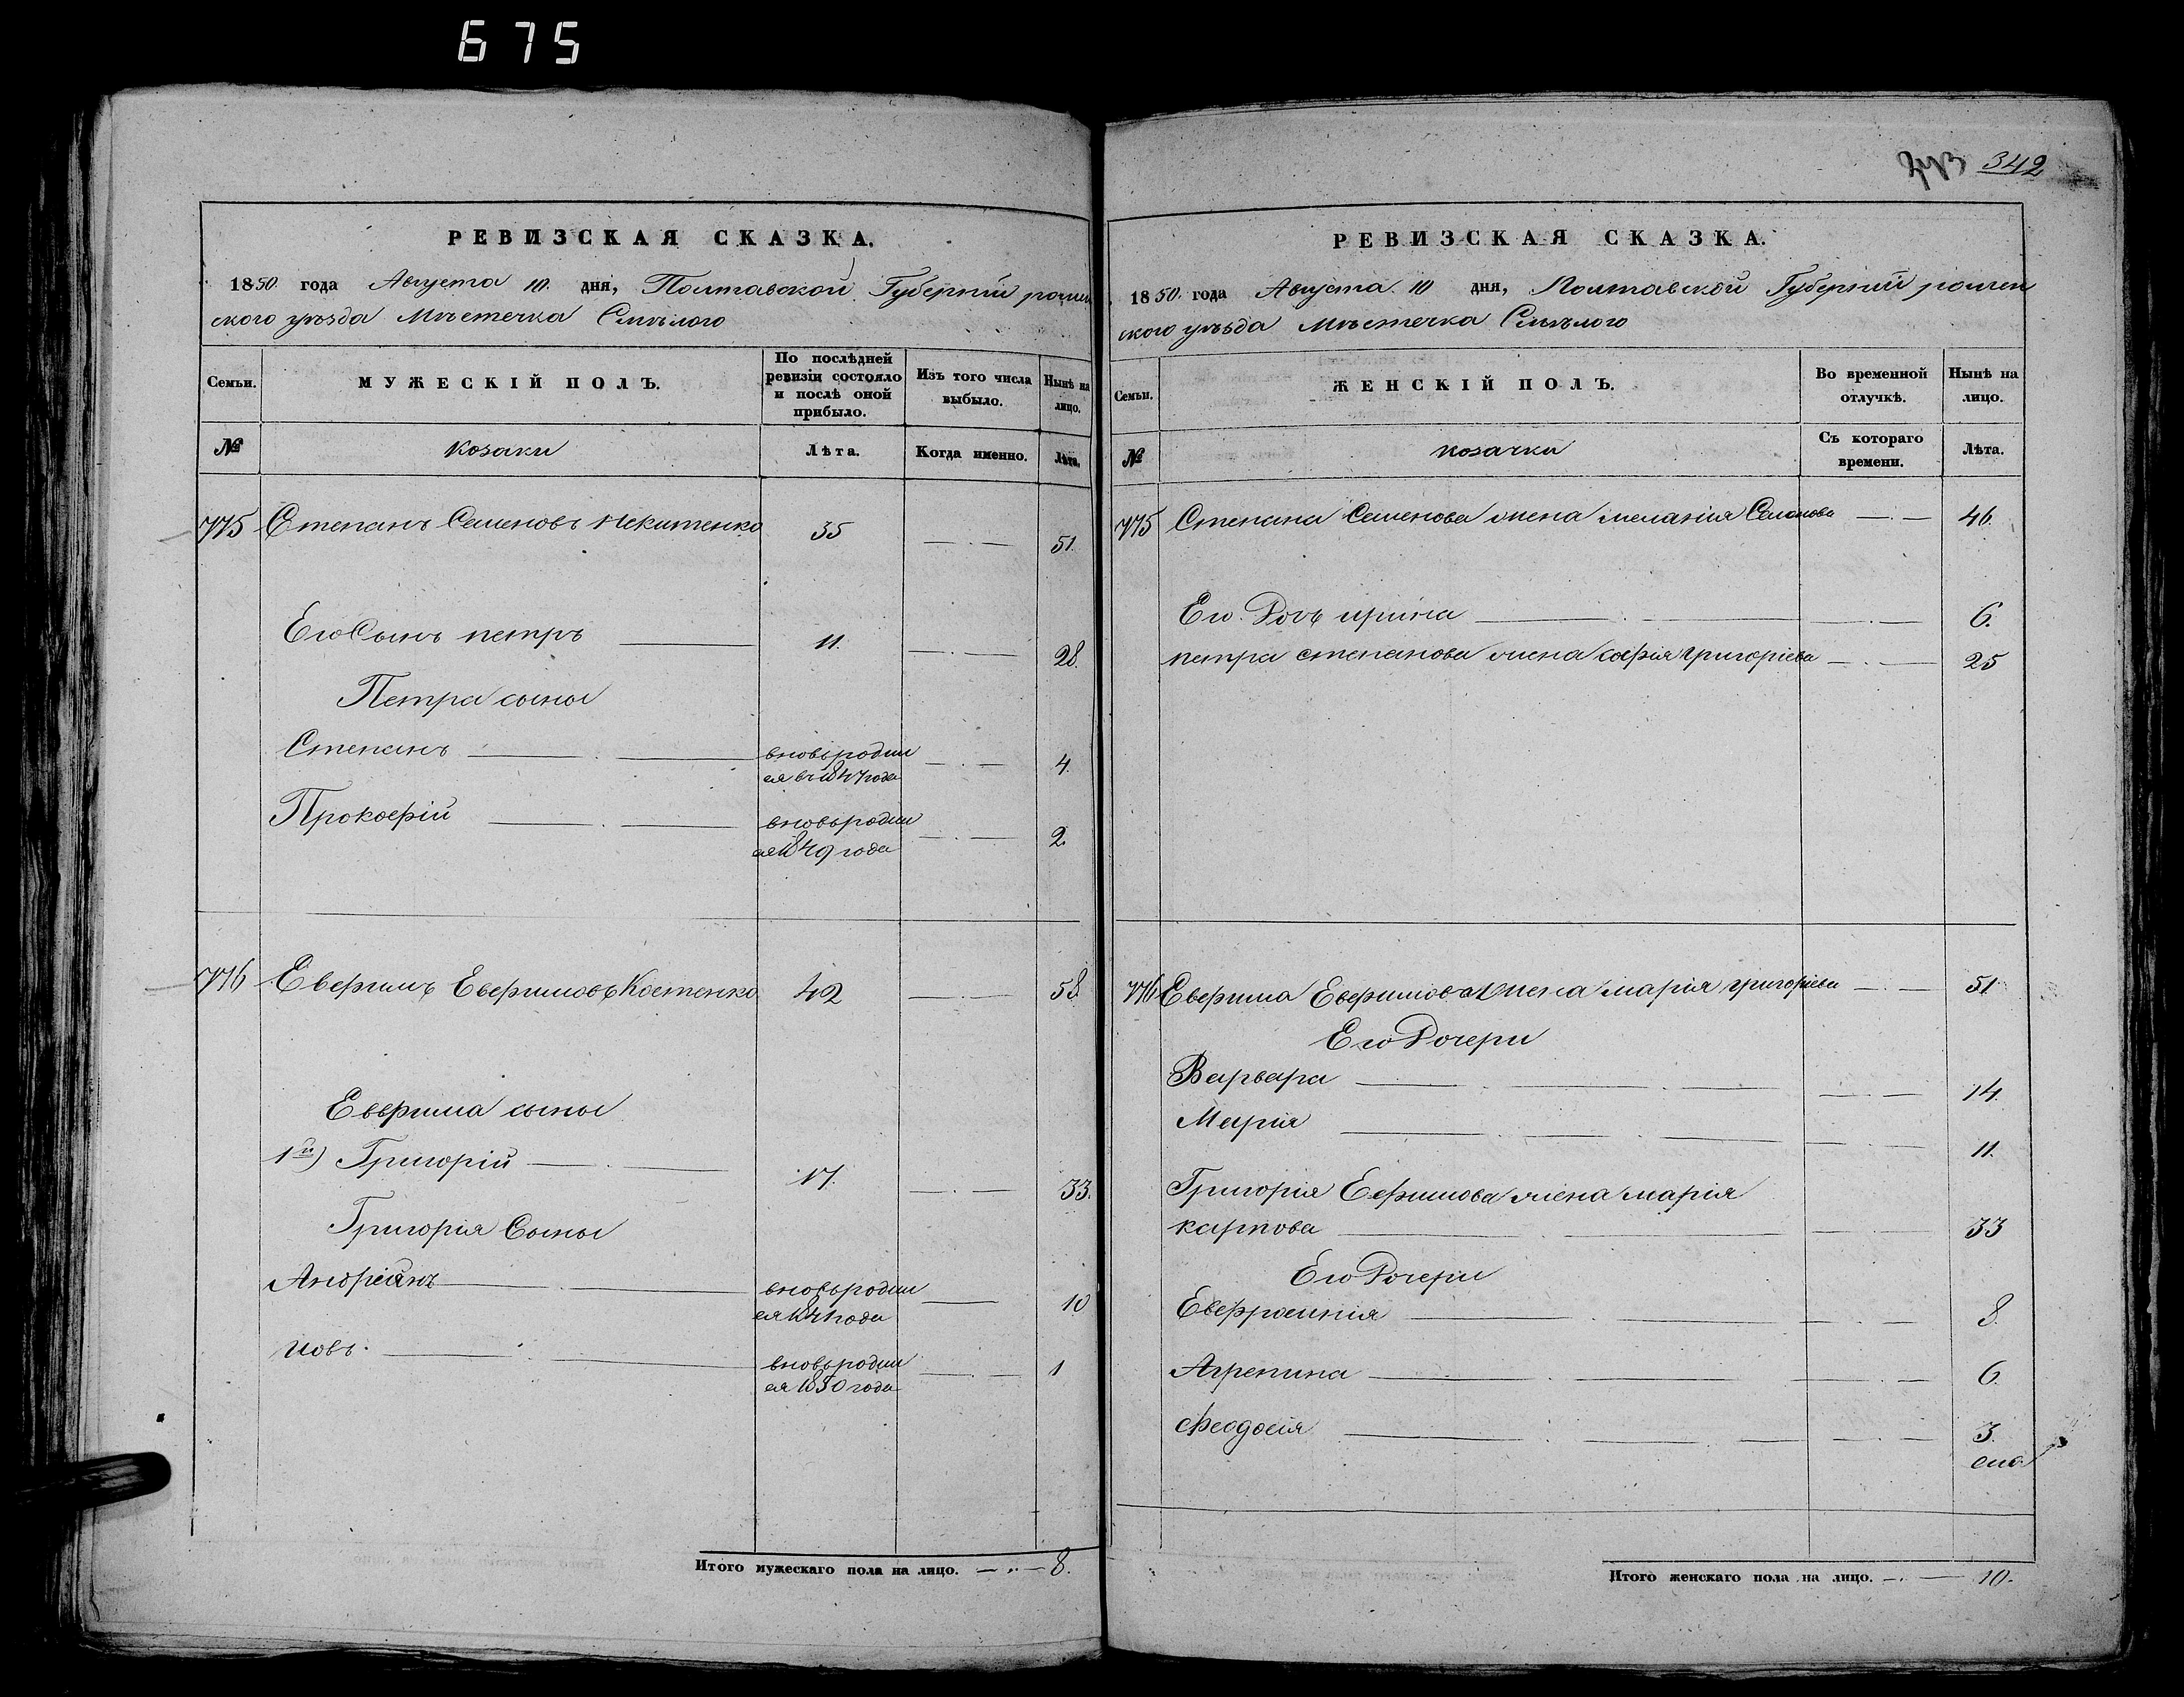 675
342
РЕВИЗСКАЯ СКАЗКА.
1850. года Августа 10. дня, Полтавской Губерніи ромен
ского уѣзда Мѣстечка Смѣлого
Семьи.
МУЖЕСКІЙ ПОЛЪ.
По послѣдней ревизіи состояло и послѣ оной прибыло.
Изъ того числа выбыло.
Нынѣ на лицо.
№
козаки
Лѣта.
Когда именно.
Лѣта.
775 Степанъ Семеновъ Некитенко 35 51.
Его Сынъ петръ 11. 28.
Петра сыны
Степанъ вновьродил
ся въ 1847 года 4.
Прокофій вновьродил
ся 1849 года 2.
776 Евфимъ Евфимовъ Костенко 42 58.
Евфима сыны
1й) Григорій 17. 33.
Григорія Сыны
Андріянъ вновьродил
ся 1841 года 10
иовъ. вновьродил
ся 1850 года 1
Итого мужескаго пола на лицо. 8.
РЕВИЗСКАЯ СКАЗКА.
1850. года Августа. 10 дня, Полтавской Губерніи ромен
ского уѣзда Мѣстечка Смѣлого
Семьи.
ЖЕНСКІЙ ПОЛЪ.
Во временной отлучкѣ.
Нынѣ на лицо.
№
козачки
Съ котораго времени.
Лѣта.
775 Степана Семенова жена меланія 46.
Его Дочь ирина 6.
петра степанова жена софія григоріева 25
776 Евфима Евфимова жена марія григоріева 51
Его Дочери
Варвара 14.
Марія 11.
Григорія Ефимова жена марія
карпова 33
Его Дочери
Евфросинія 8.
Агрепина 6.
Феодосія 3.
Итого женскаго пола на лицо. 10.